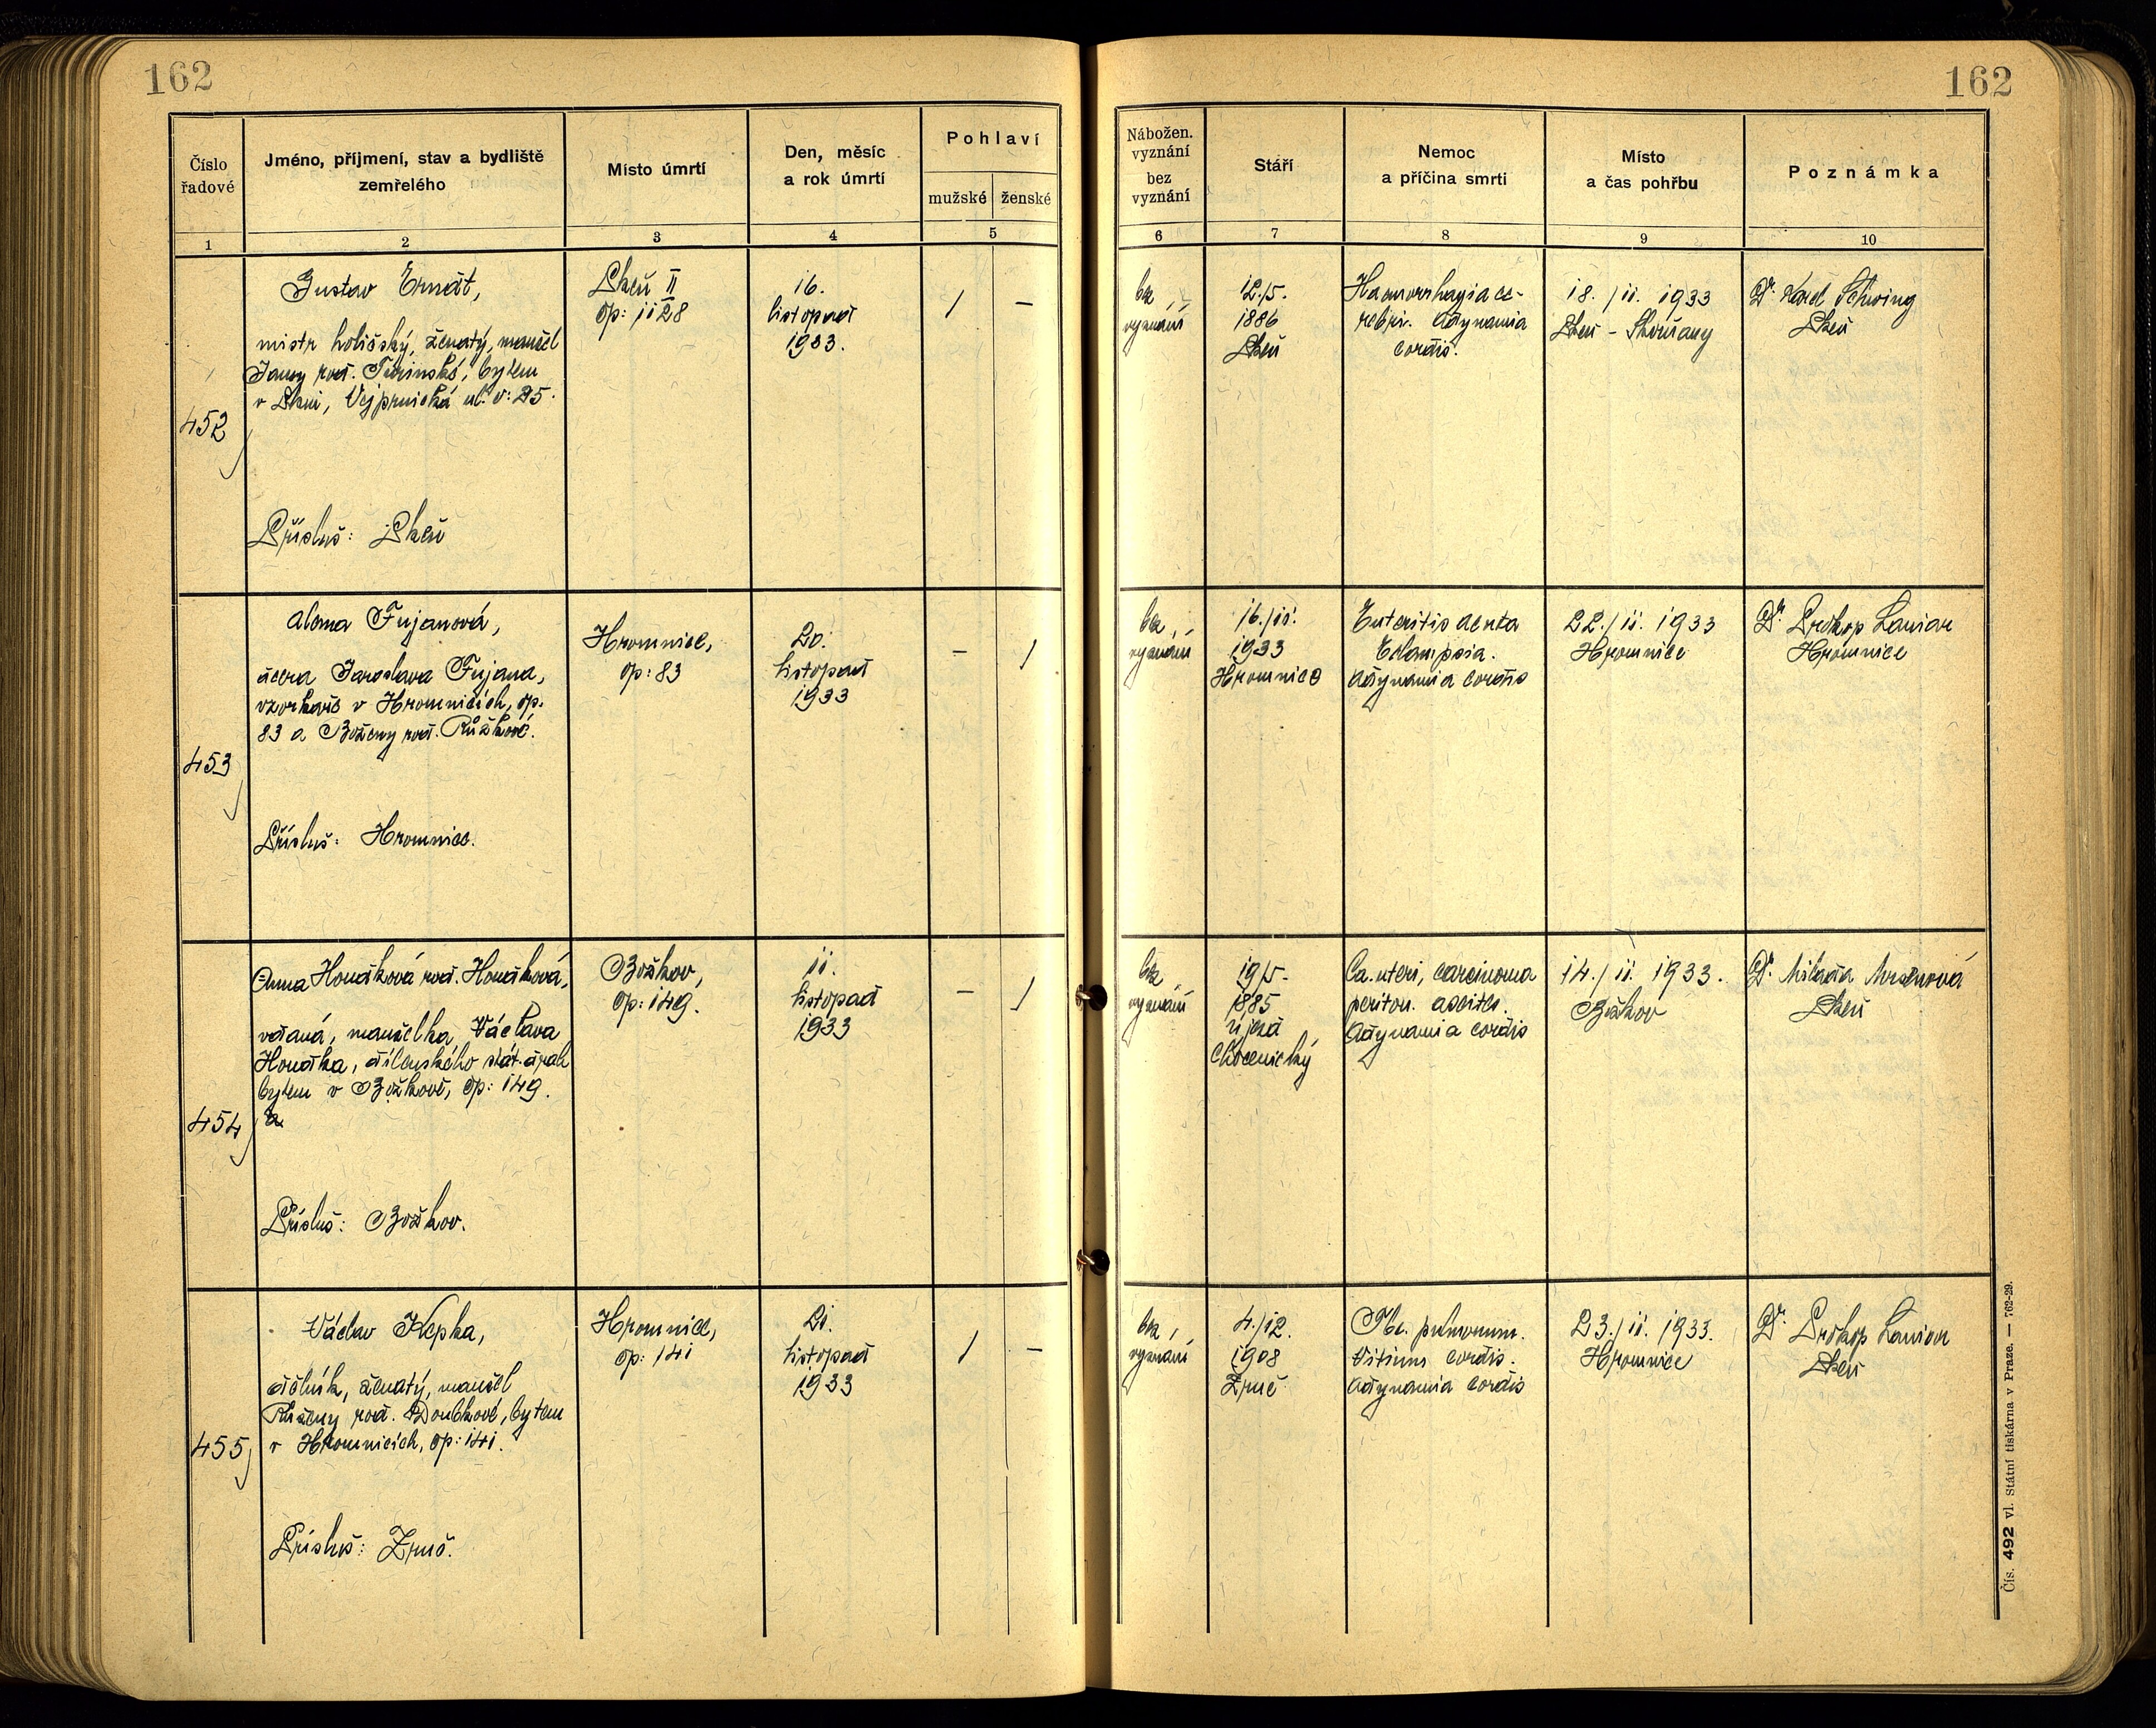 162
162
Číslo
řadové
Jméno, příjmení, stav a bydliště
zemřelého
Místo úmrtí
Den, měsíc
a rok úmrtí
Pohlaví
mužské
ženské
Nábožen.
vyznání
bez
vyznání
Stáří
Nemoc
a příčina smrti
Místo
a čas pohřbu
Poznámka
1
2
3
4
5
6
7
8
9
10
452
Gustav Ernát,
mistr holičský, ženatý, manžel
Jany roz. bytem
v Plzni, Vejprnická ul. č: 25.
Přísluš: Plzeň
Plzeň II
čp: 1128
16.
listopad
1933.
/
–
bez
vyznání
12./5.
1886
Plzeň
Haemorrhagia ce-
rebri. Adynamia
cordis.
18./11. 1933
Plzeň - Skvrňany
Dr. Karel Schwing
Plzeň
453
Alena Fujanová,
dcera Jaroslava Fujana,
vzorkaře v Hromnicích, čp.
83 a Boženy roz. Růžkové.
Přísluš: Hromnice.
Hromnice,
čp: 83
20.
listopad
1933
–
/
bez
vyznání
16./10.
1933
Hromnice
Enteritis acuta
Eclampsia.
Adynamia cordis
22./11. 1933
Hromnice
Dr. Prokop
Hromnice
454
Anna Honzíková roz. Honzíková,
vdaná, manželka Václava
dílenského stát. drah
bytem v Božkově, čp: 149.
Přísluš: Božkov.
Božkov,
čp: 149.
11.
listopad
1933
–
/
bez
vyznání
19/5.
1885
újezd
Chocenický
Ca. uteri, carcinoma
periton. ascites.
Adynamia cordis
14./11. 1933.
Božkov
Dr. Milada
Plzeň
455
Václav Kepka,
dělník, ženatý, manžel
Růženy roz. Doubkové, bytem
v Hromnicích, čp: 141.
Přísluš: Zruč.
Hromnice,
čp: 141
21.
listopad
1933
/
–
bez
vyznání
4./12.
1908
Zruč
Tbc. pulmonum.
Vitium cordis.
Adynamia cordis
23./11. 1933.
Hromnice
Dr. Prokop
Plzeň
Čís. 492 vl. Státní tiskárna v Praze. — 762-29.